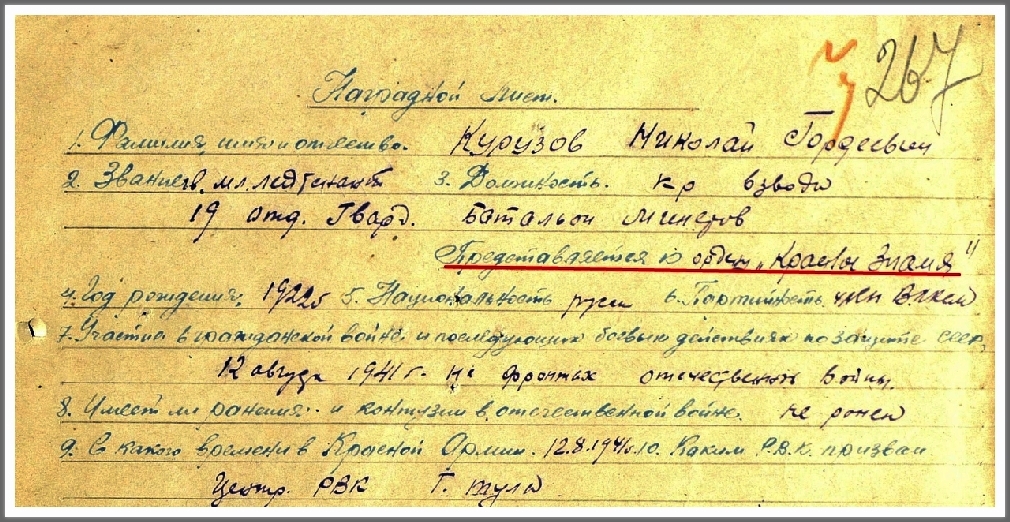 267
Наградной лист.
1. Фамилия, имя и отчество. Курузов Николай Гордеевич
2. Звание гв. мл. лейтенант 3. Должность. к-р взвода
19 отд. Гвард. батальон минеров
Представляется к ордену „Красное Знамя"
4. Год рождения, 1922г 5. Национальность русск 6. Партийность. член ВЛКСМ
7. Участие в гражданской войне и последующих боевых действиях по защите СССР,
12 августа 1941 г. на фронтах отечественной войны,
8. Имеет ли ранения и контузии в отечественной войне. не ранен
9. С какого времени в Красной Армии. 12.8.1941г. 10. Каким Р.В.К. призван
Центр. РВК г. Тула